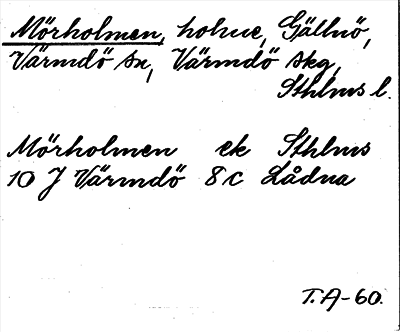 Mörholmen, holme, Gällnö,
Värmdö sn, Värmdö skg,
Sthlms l.
Mörholmen ek Sthlms
10 J Värmdö 8 c Lådna
T.A-60.